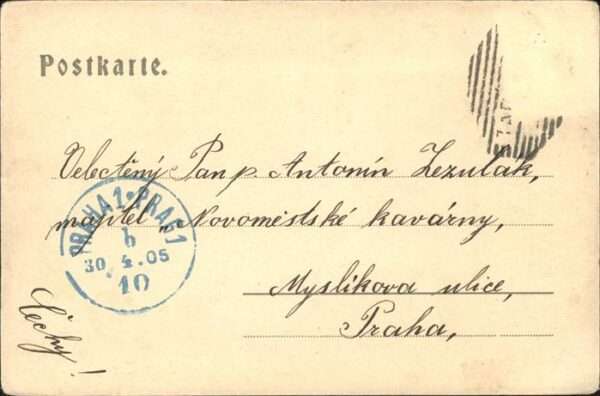 Postkarte.
Velectěný Pan p. Antonín Zezulak,
majitel „Novoměstské kavárny,
Myslikova ulice,
Praha,
Čechy!
PRAHA 1 • PRAG 1
b
30.4.05
10